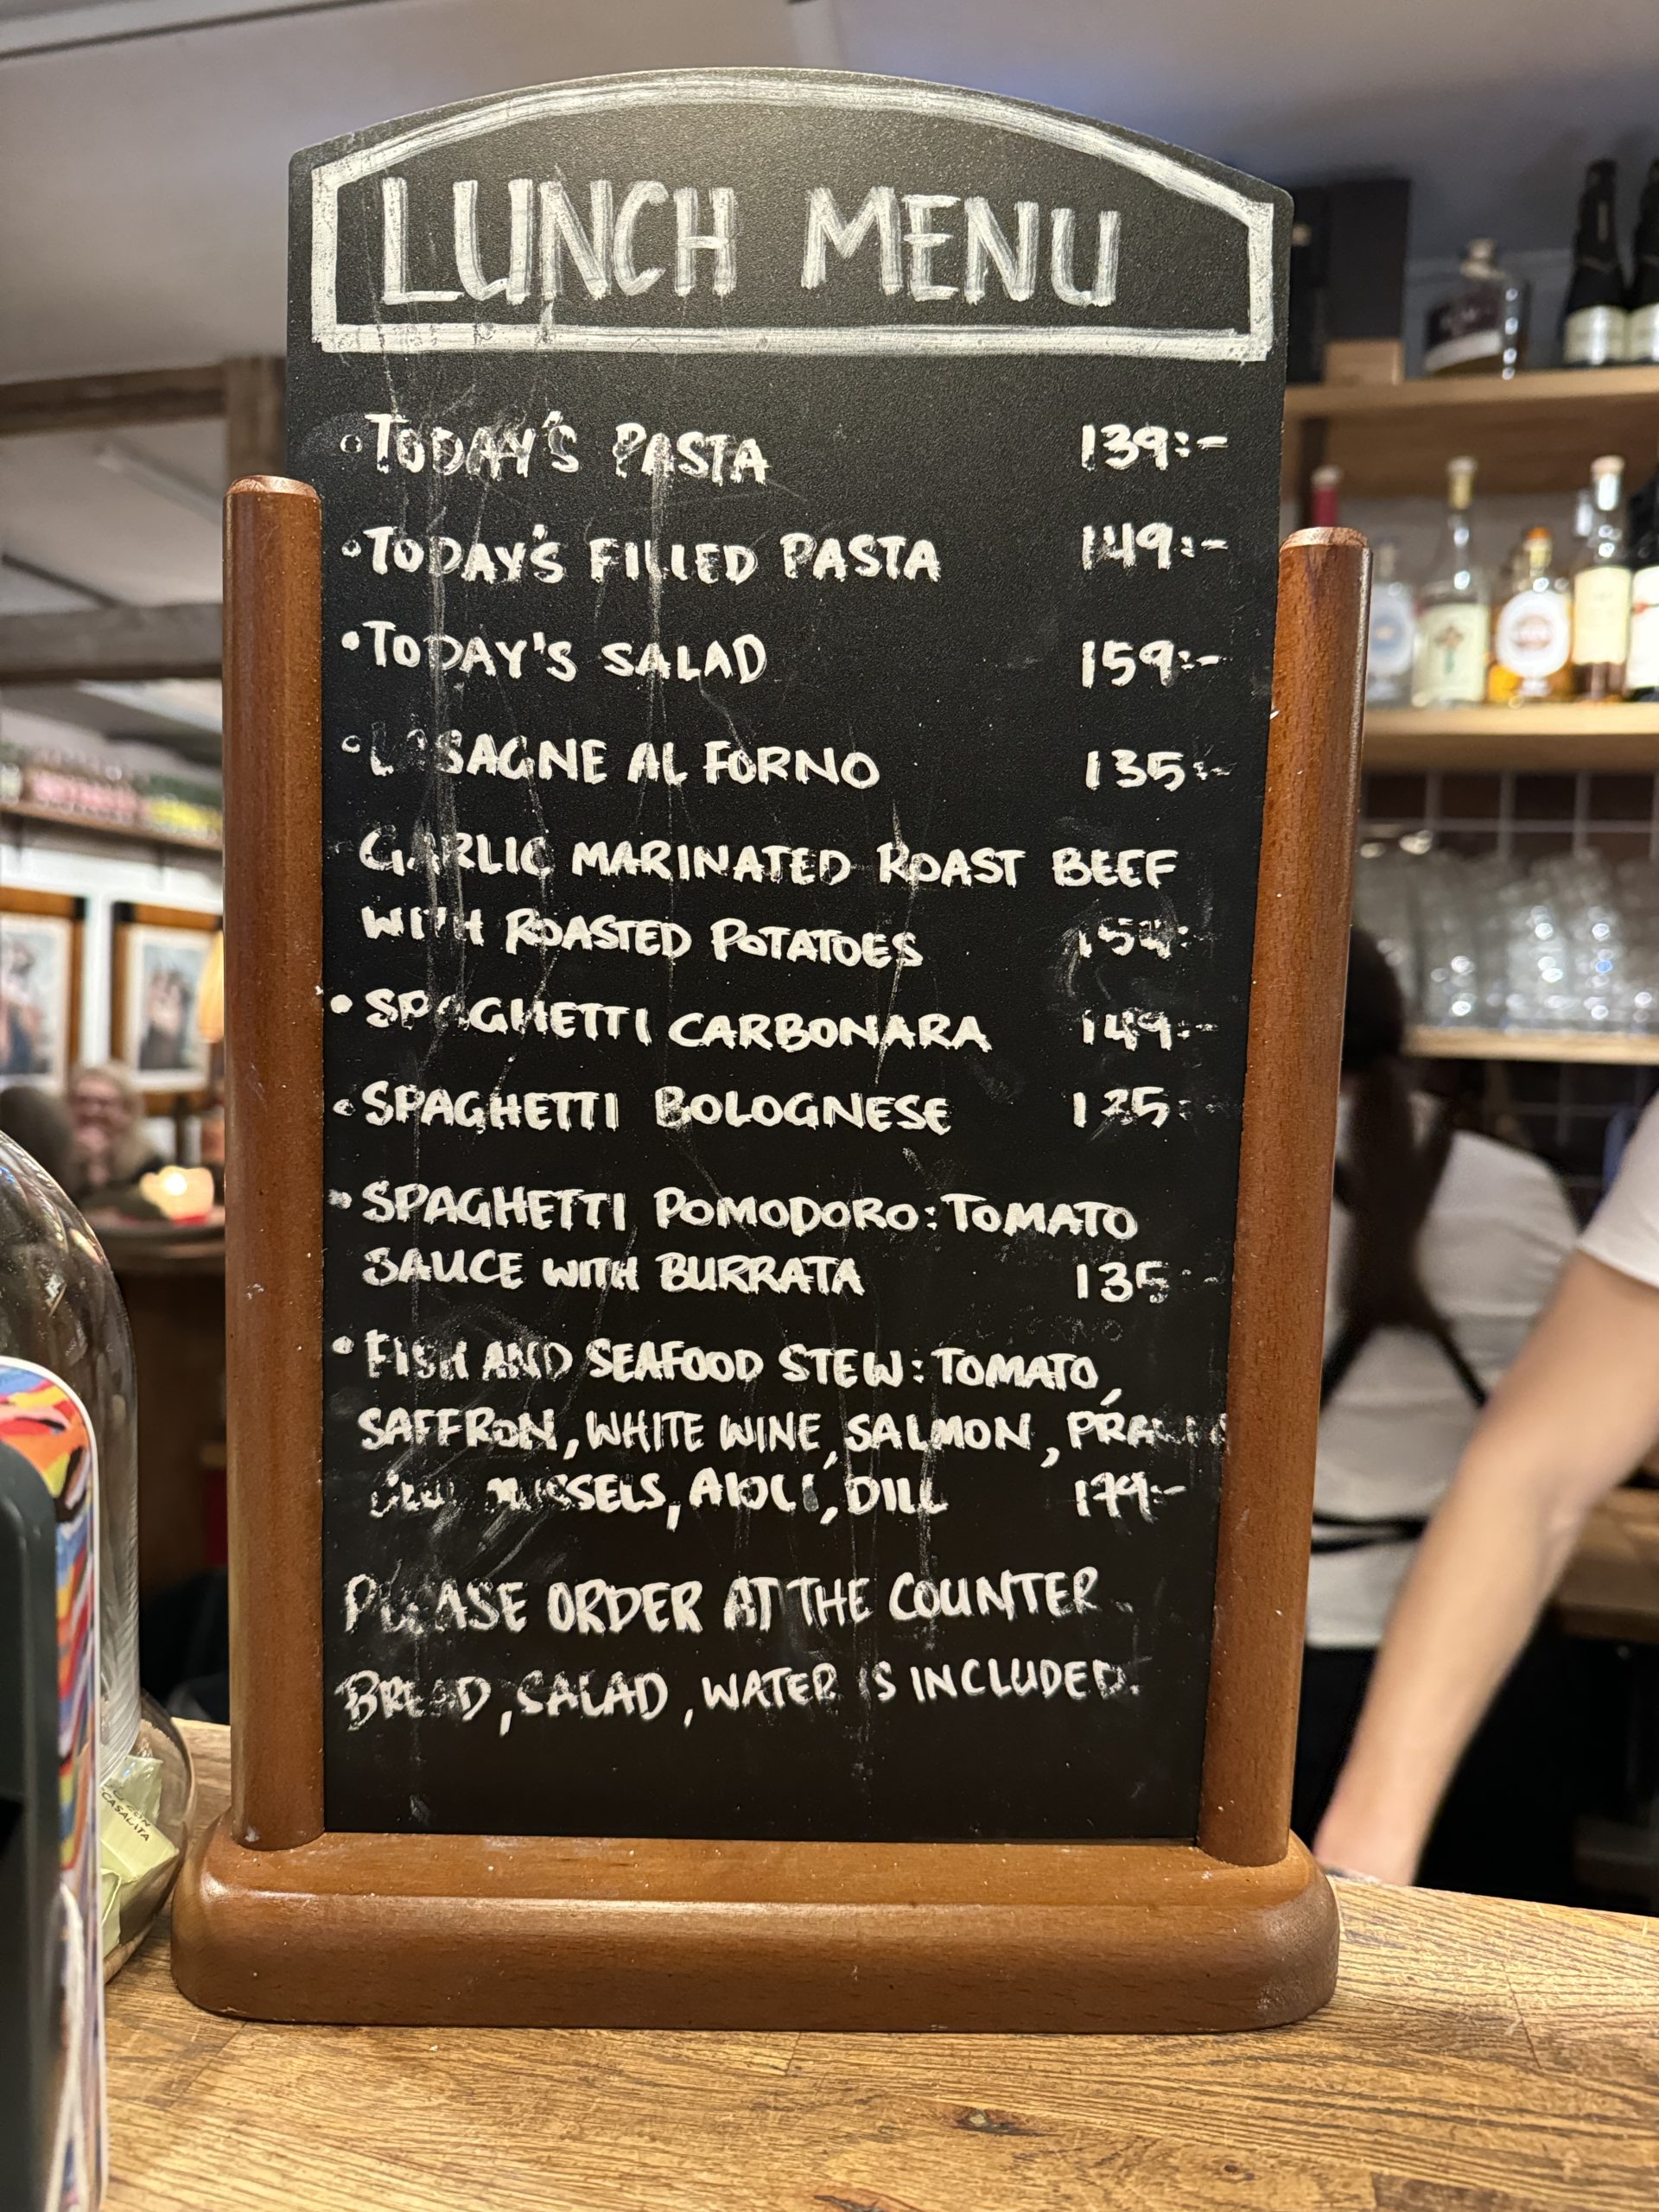 LUNCH MENU
• TODAY'S PASTA 139:-
• TODAY'S FILLED PASTA 149:-
• TODAY'S SALAD 159:-
• LASAGNE AL FORNO 135:-
GARLIC MARINATED ROAST BEEF
WITH ROASTED POTATOES
• SPAGHETTI CARBONARA 149:-
• SPAGHETTI BOLOGNESE
• SPAGHETTI POMODORO: TOMATO
SAUCE WITH BURRATA 135:-
• FISH AND SEAFOOD STEW: TOMATO,
SAFFRON, WHITE WINE, SALMON, PRAWNS
MUSSELS, AIOLI, DILL 179:-
PLEASE ORDER AT THE COUNTER.
BREAD, SALAD, WATER IS INCLUDED.
CASALITA